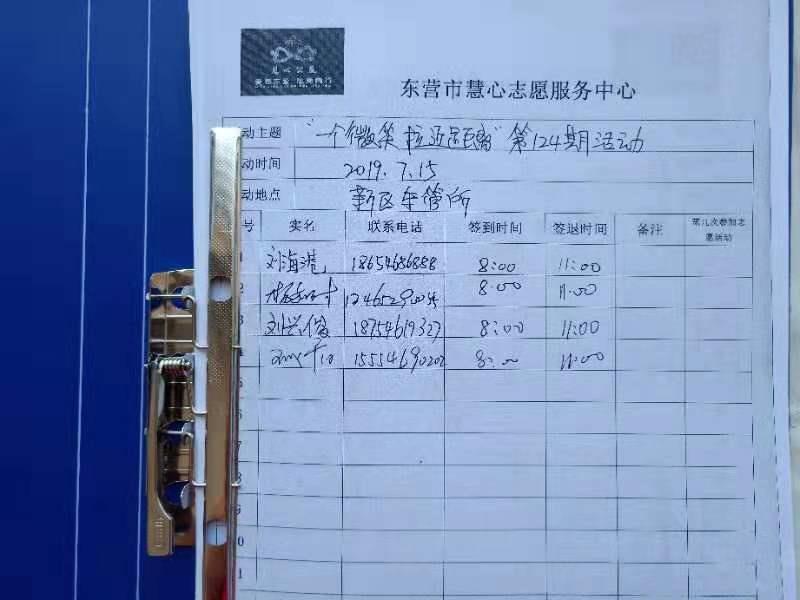 慧心公益
东营市慧心志愿服务中心
动主题 "一个微笑 拉近距离" 第124期活动
动时间 2019.7.15
动地点 新区车管所
号 实名 联系电话 签到时间 签退时间 备注 第几次参加志愿活动
刘海港 18654686888 8:00 11:00
2 8:00 11:00
3 刘兴俊 18754619327 8:00 11:00
15554690202 8:00 11:00
5
6
7
8
9
0
1